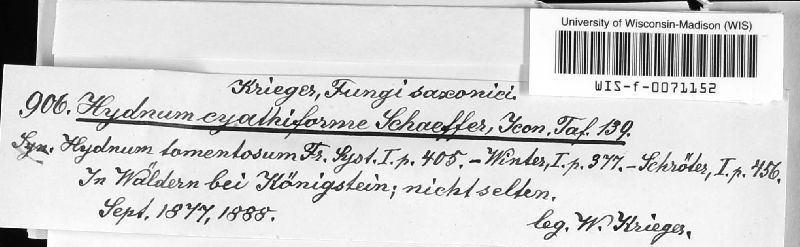 University of Wisconsin-Madison (WIS)
WIS-f-0071152
Krieger, Fungi saxonici.
906. Hydnum cyathiforme Schaeffer, Icon. Taf. 139.
Syn. Hydnum tomentosum Fr. Syst. I. p. 405. - Winter, I. p. 377. - Schröter, I. p. 456.
In Wäldern bei Königstein; nicht selten.
Sept. 1877, 1888.
leg. W. Krieger.